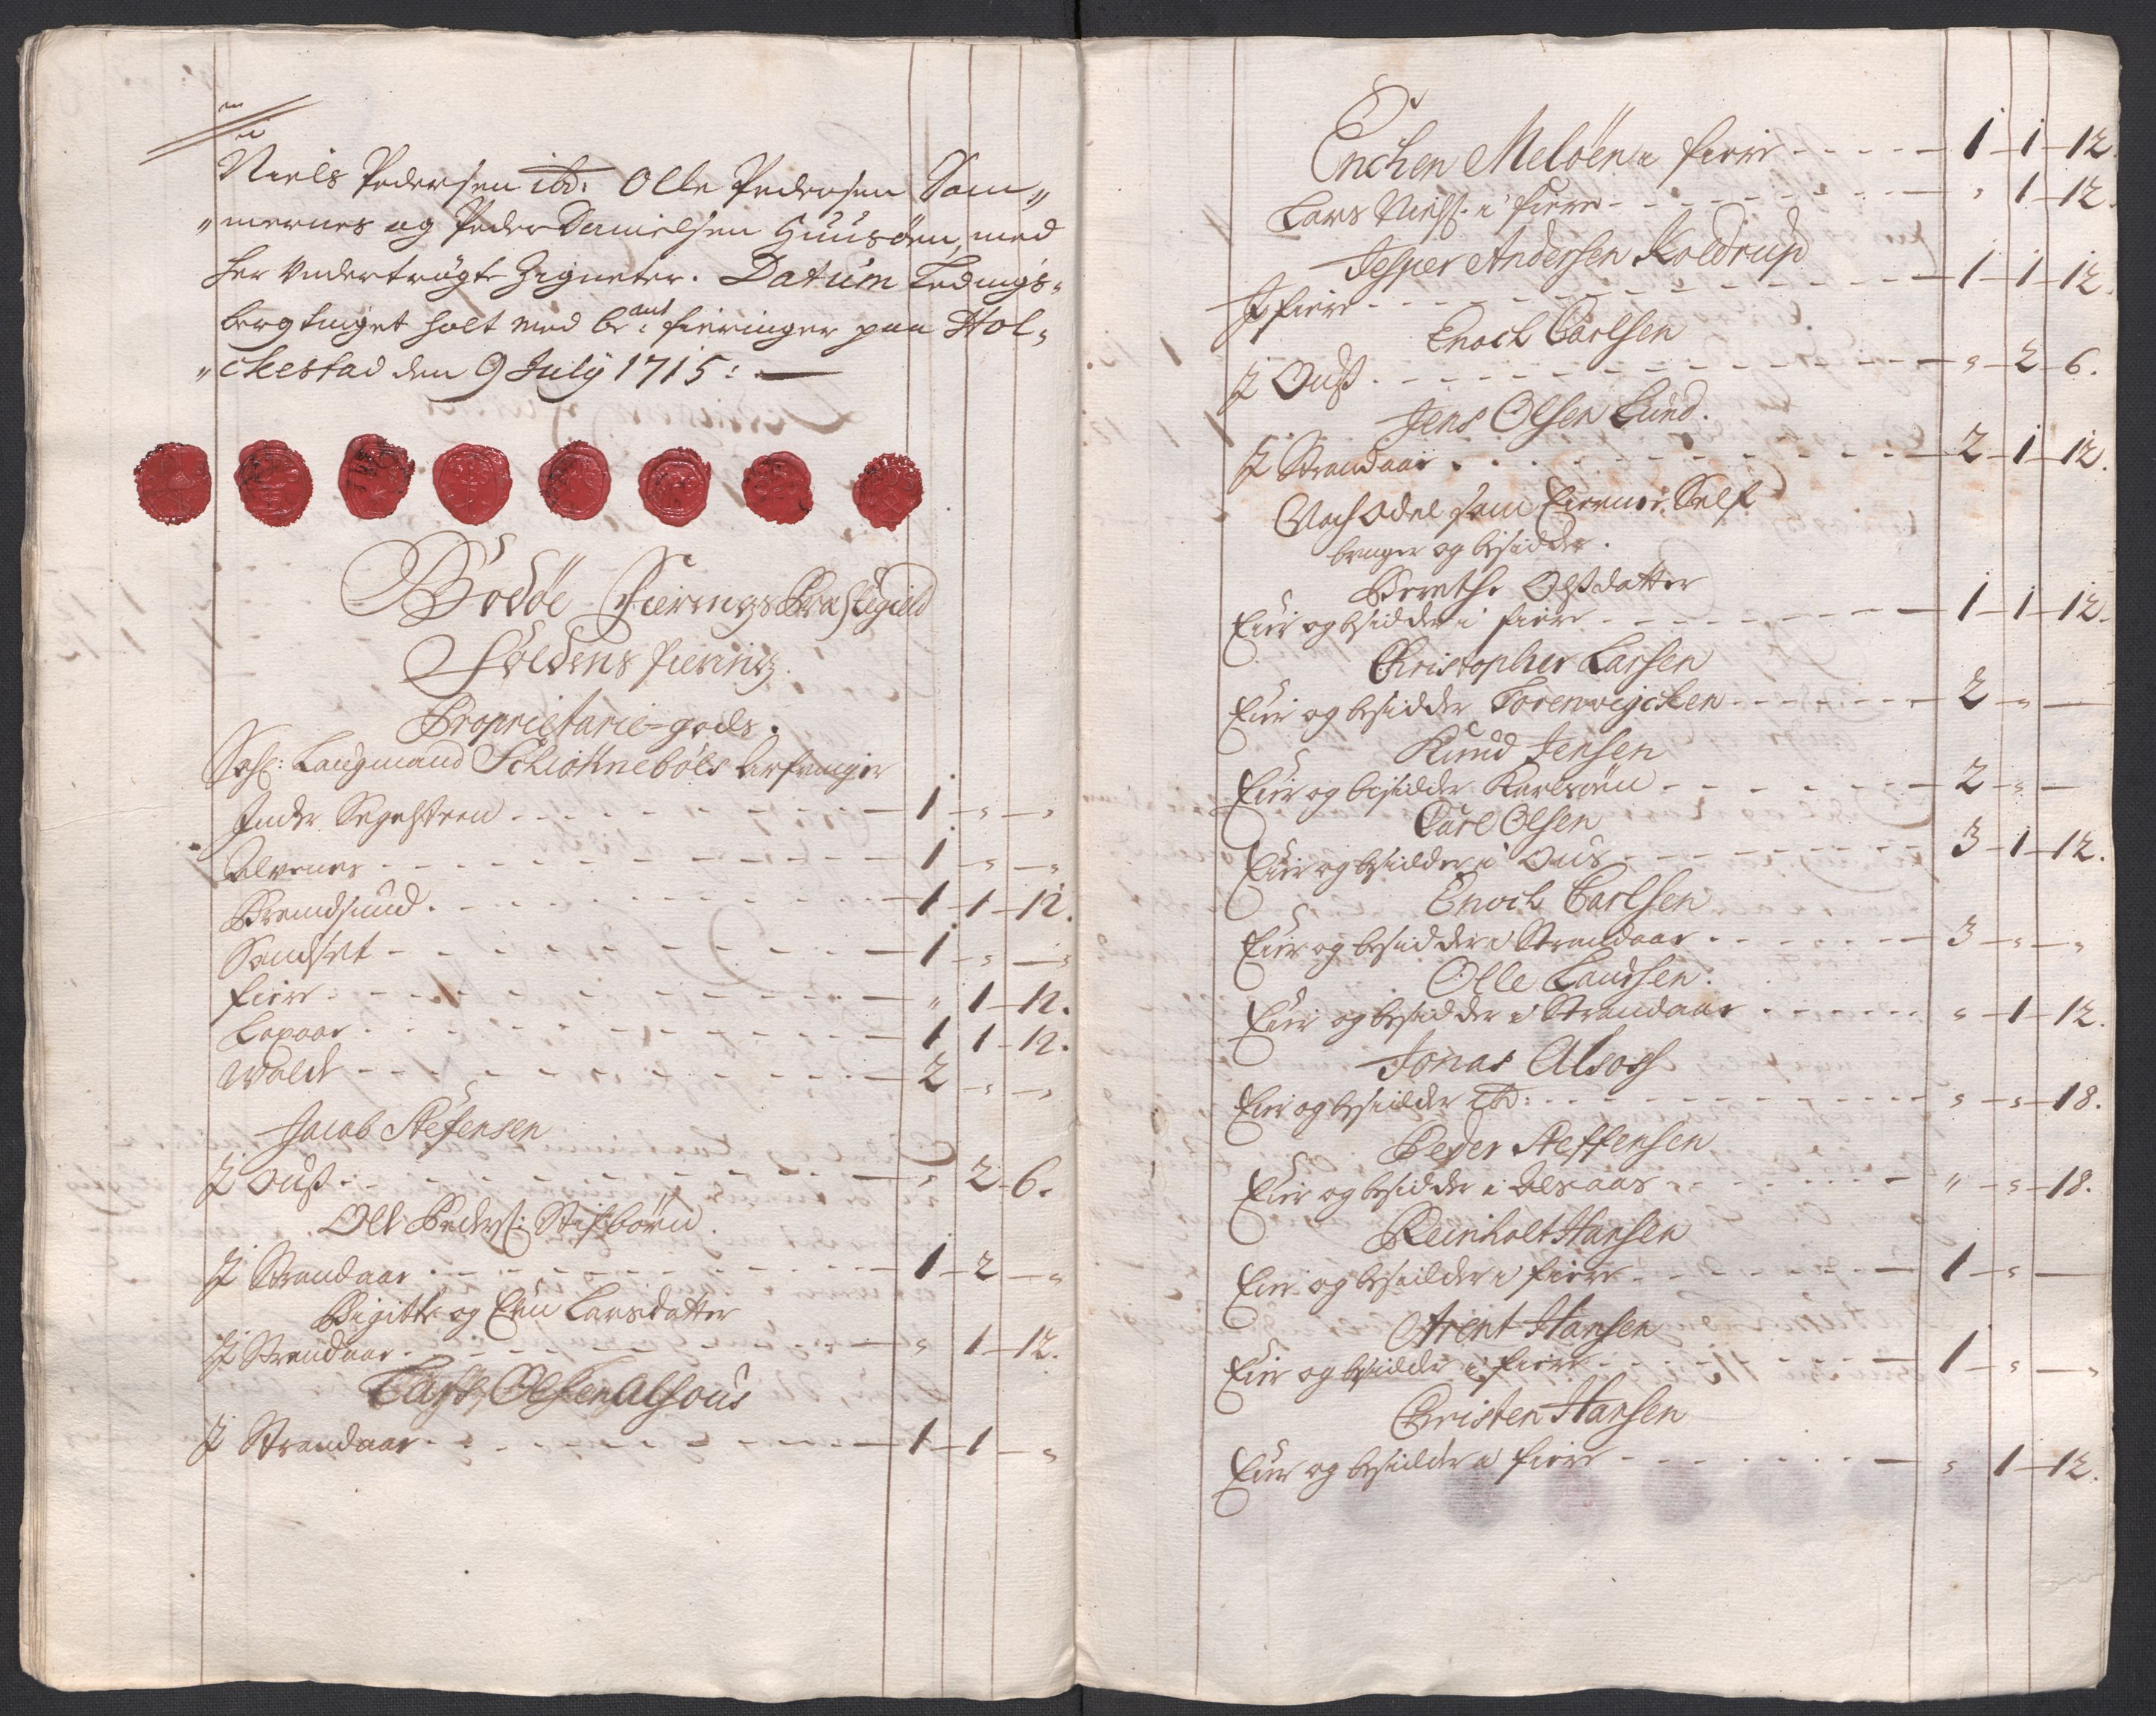 Niels Pedersen ibd: Olle Pedersen Som„
„mernes og Peder Danielsen Huusøen, med
her undertrøgte Zigneter. Datum Ledings„
berg tinget holt med be:ᵐˡᵗ fieringer paa Hol„
„ckestad den 9 July 1715:
Bodøe Fierings Præstegield
Foldens fiering.
Proprietarie-gods.
Sahl: Laugmand Schiøhnebøls Arfvinger
Inder Segelsteen - 1 - „ - „
Alvenes - 1 - „ - „
Bremdsund - 1 - 1 - 12.
Sandset - 1 - „ - „
fiere - „ 1 - 12.
Laxaar - 1 1 - 12.
Walde - 2 - „ - „
Jacob Stefensen
I Ouß - „ 2 - 6.
Ole Peders: Stifbørn.
I Strandaar - 1 - 2 - „
Bigitte og Elen Larsdatter
I Strandaar - „ 1 - 12.
Lars Olsen Alsous
I Strandaar - 1 - 1 - „
Enchen Meløen i fiere - 1 - 1 - 12.
Lars Nielß: i fiere - „ 1 - 12.
Jesper Andersen Koldrup
I fiere - 1 - 1 - 12.
Enoch Carlsen
I Ouß - „ - 2 - 6.
Jens Olsen Lund.
I Strandaar - 2 - 1 - 12.
Noch Odel som Eierne Self
bruger og besidder.
Berethe Olsdatter
Eier og besidder i fiere - 1 - 1 - 12.
Christopher Larsen
Eier og besidder Torenvigcken - 2 - „ -
Knud Jensen
Eier og besidder Karlsøen - 2 - „ -
Carl Olsen
Eier og besidder i Ous - 3 - 1 - 12.
Enoch Carlsen
Eier og besidder i Strandaar - 3 - „ - „
Olle Laursen.
Eier og besidder i Strandaar - „ - 1 - 12.
Jonas Alsos
Eier og besidder ibd: - „ - „ - 18.
Peder Steffensen
Eier og besidder i Alsaas - „ - „ - 18.
Reinholt Hansen
Eier og besidder i fiere - 1 - „ -
Arent Hansen
Eier og besidder i fiere - 1 - „ - „
Christen Hansen
Eier og besidder i fiere - „ 1 - 12.